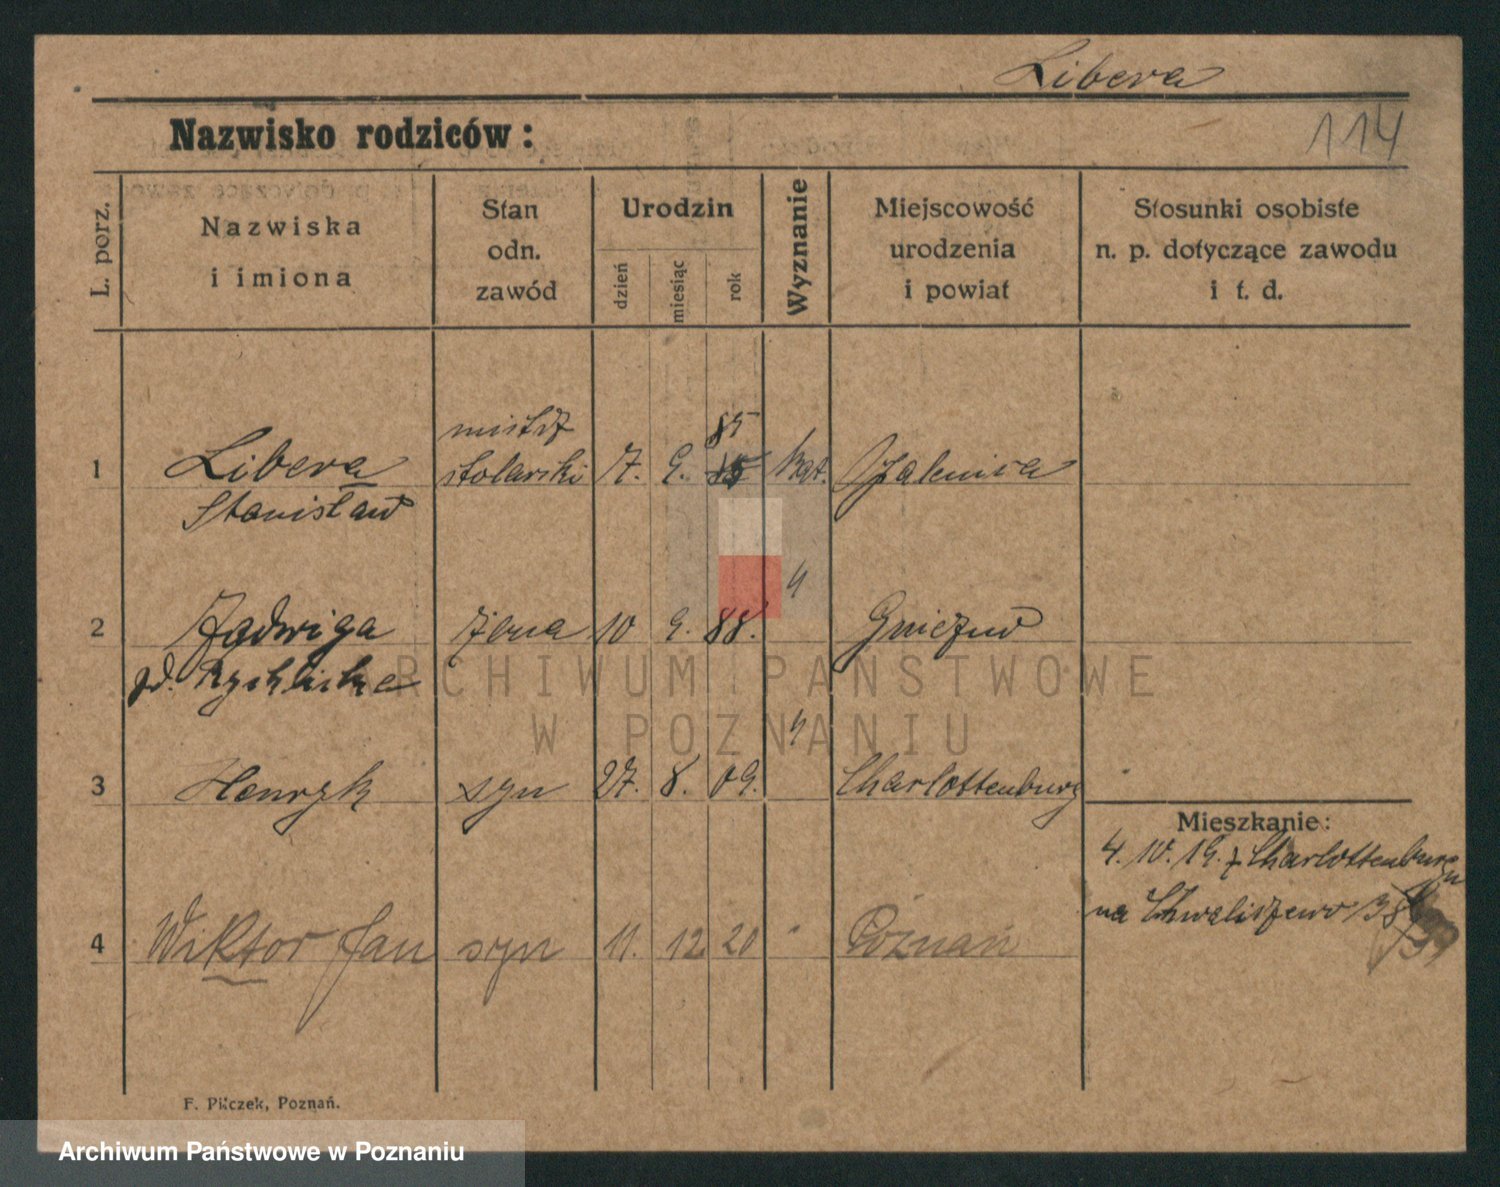 Libera
114
Nazwisko rodziców:
L. porz.
Nazwiska
i imiona
Stan
odn.
zawód
Urodzin
dzień
miesiąc
rok
Wyznanie
Miejscowość
urodzenia
i powiat
Stosunki osobiste
n. p. dotyczące zawodu
i t. d.
mistrz 85
1 Libera stolarski 7. 9. kat. Opalenica
Stanisław
2 Jadwiga żona 10 9. 88. " Gniezno
Rychlicka
3 Henryk syn 27. 8. 09. " Charlottenburg
Mieszkanie:
4. 10. 19. z Charlottenburga
na Chwaliszewo
4 Wiktor Jan syn 11. 12 20 " Poznań
F. Pilczek, Poznań.
ARCHIWUM PAŃSTWOWE
W POZNANIU
Archiwum Państwowe w Poznaniu